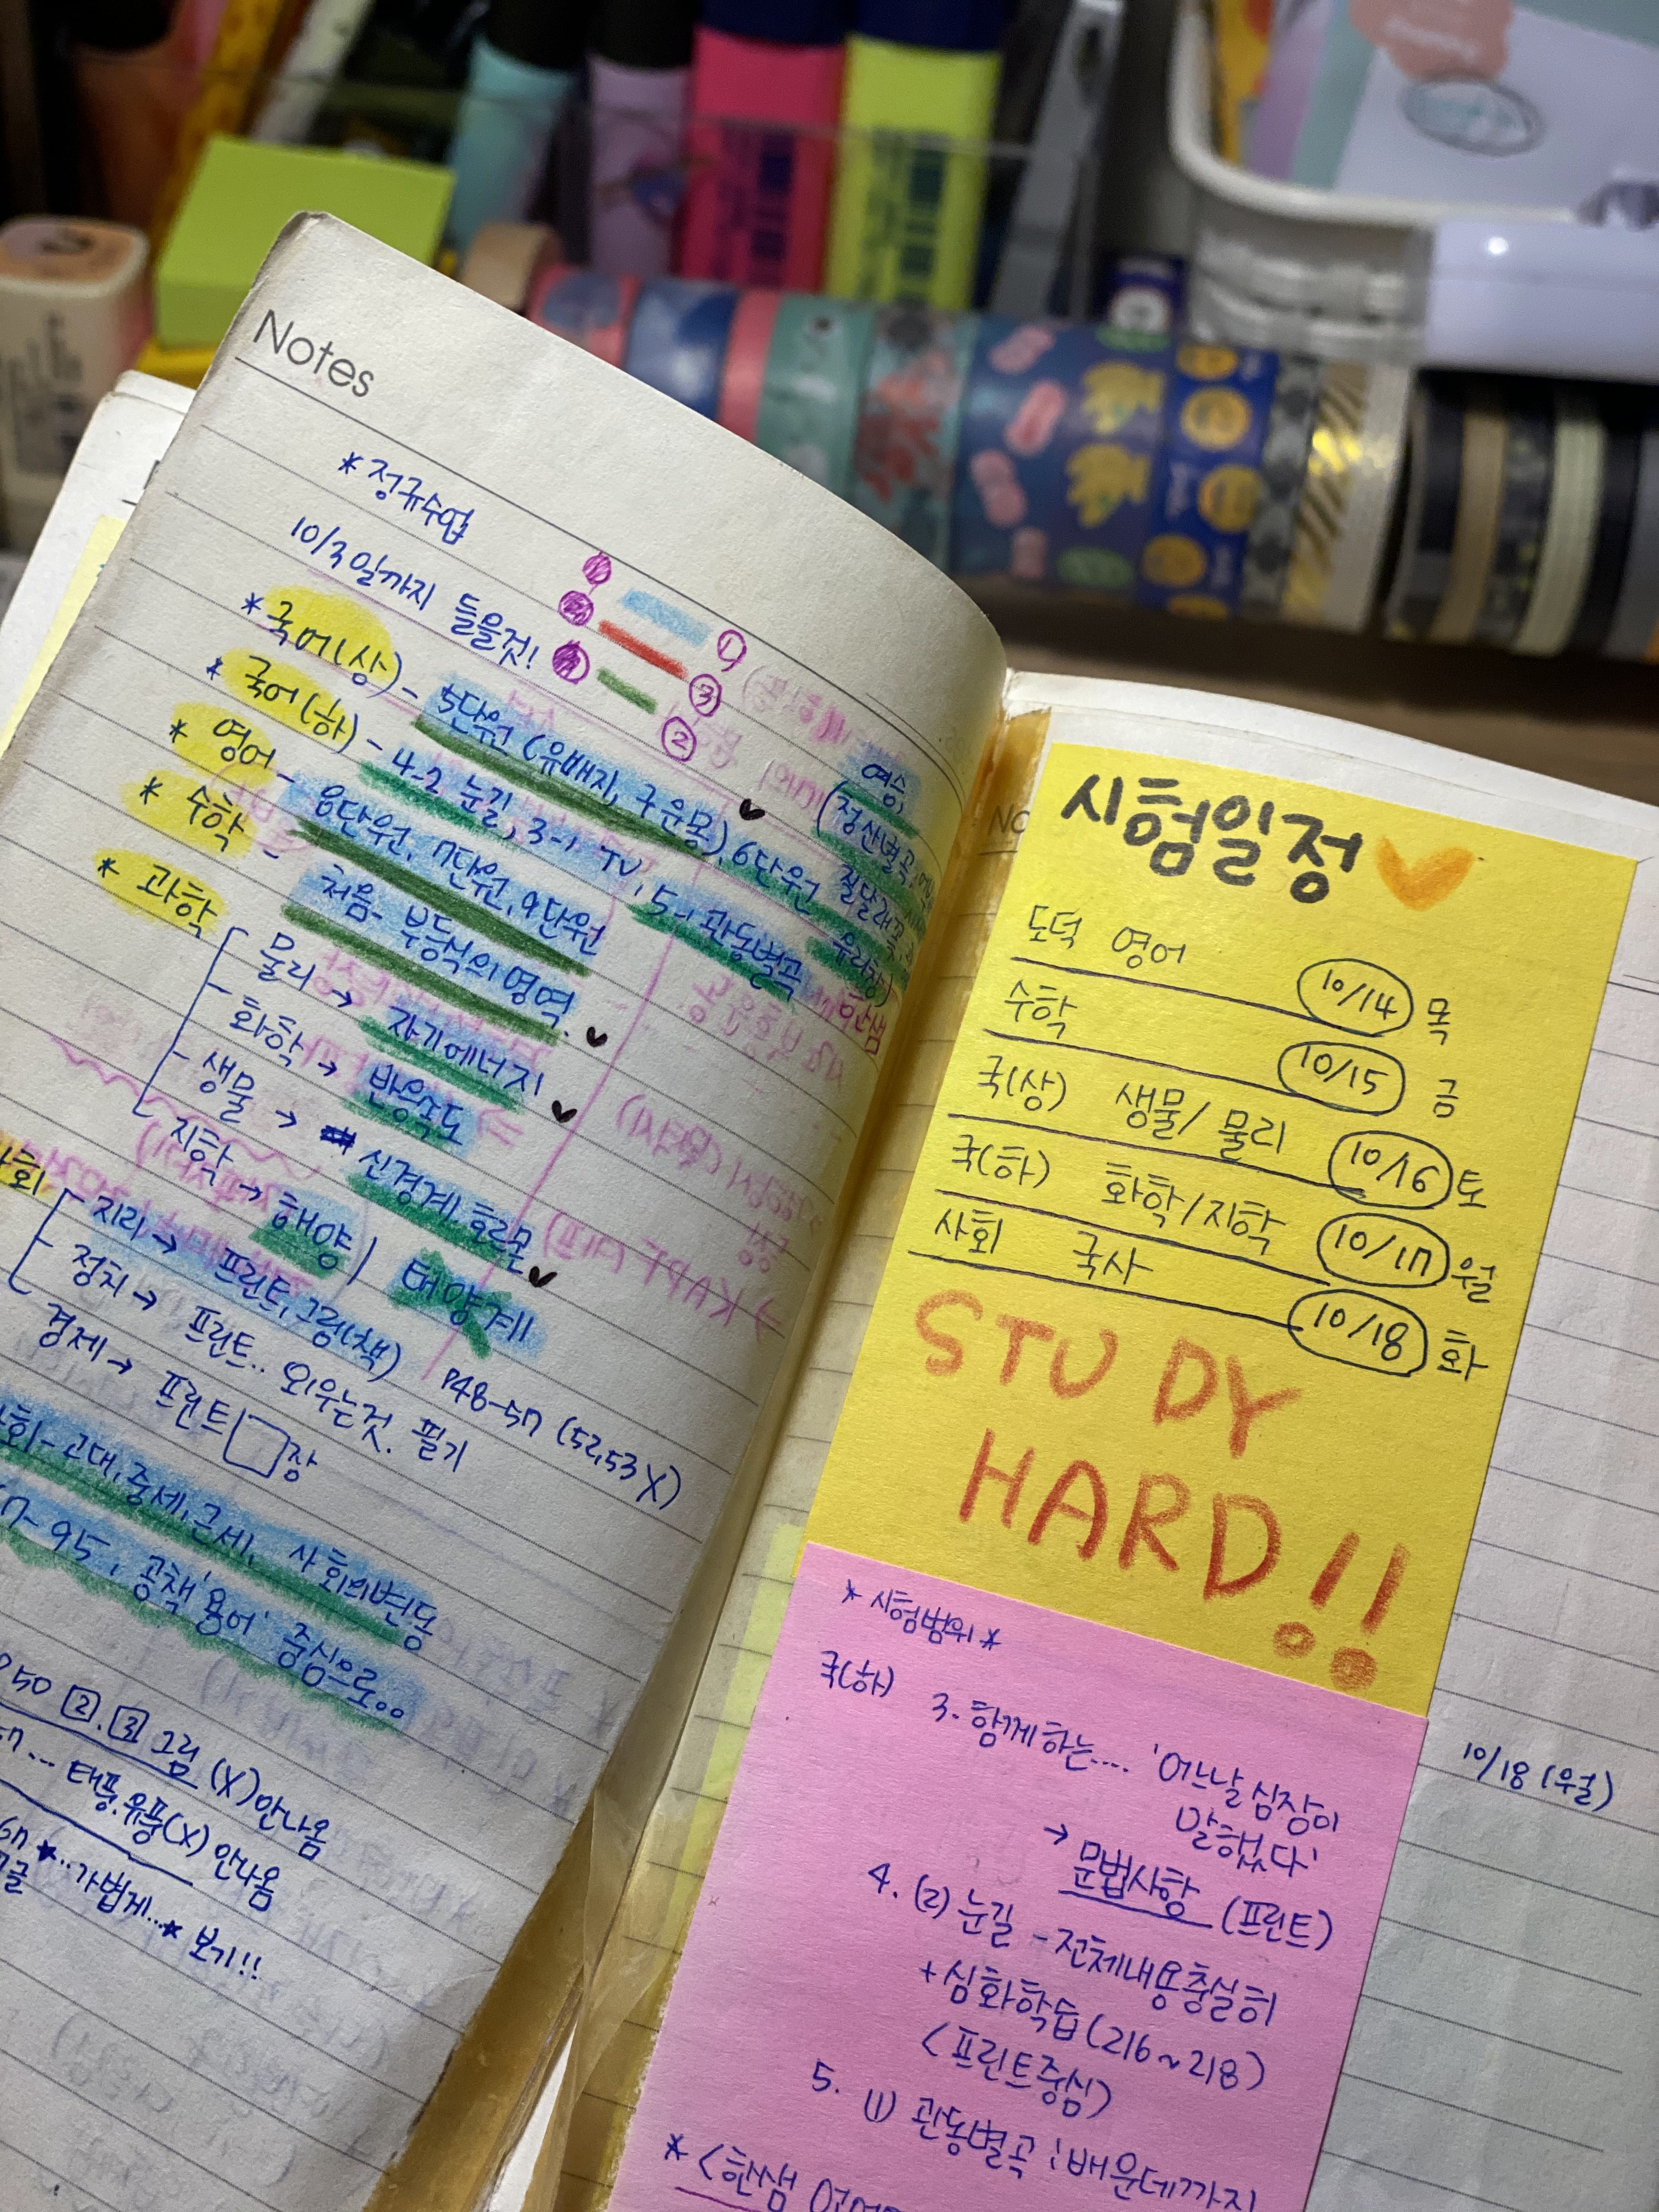 Notes
*정규수업
10/3일까지 들을것!
① ③ ②
*국어(상) - 5단원 (유배지, 구운몽), 6단원
*국어(하) - 4-2 눈길, 3-1 TV, 5-1 관동별곡
*영어 - 8단원, 7단원, 9단원
*수학 - 처음 - 부등식의 영역.
*과학
- 물리 → 자기에너지
- 화학 → 반응속도
- 생물 → 신경계, 호르몬
지학 → 해양 / 태양계!!
사회
지리 → 프린트, 그림(책) P48-57 (52,53 X)
정치 → 프린트.. 외우는것. 필기
경제 → 프린트 장
사회 - 고대, 중세, 근세, 사회의변동
7-95, 공책 '용어' 중심으로..
P50 2, 3 그림 (X) 안나옴
... 태풍, 유풍(X) 안나옴
67 ★.. 가볍게...★ 보기!!
시험일정
도덕 영어 10/14 목
수학 10/15 금
국(상) 생물/물리 10/16 토
국(하) 화학/지학 10/17 월
사회 국사 10/18 화
STUDY
HARD!!
*시험범위*
국(하) 3. 함께하는.... '어느날 심장이
말했다'
→ 문법사항 (프린트)
4. (2) 눈길 - 전체내용충실히
+심화학습 (216~218)
<프린트중심)
5. (1) 관동별곡 : 배운데까지
* <한샘
10/18 (월)